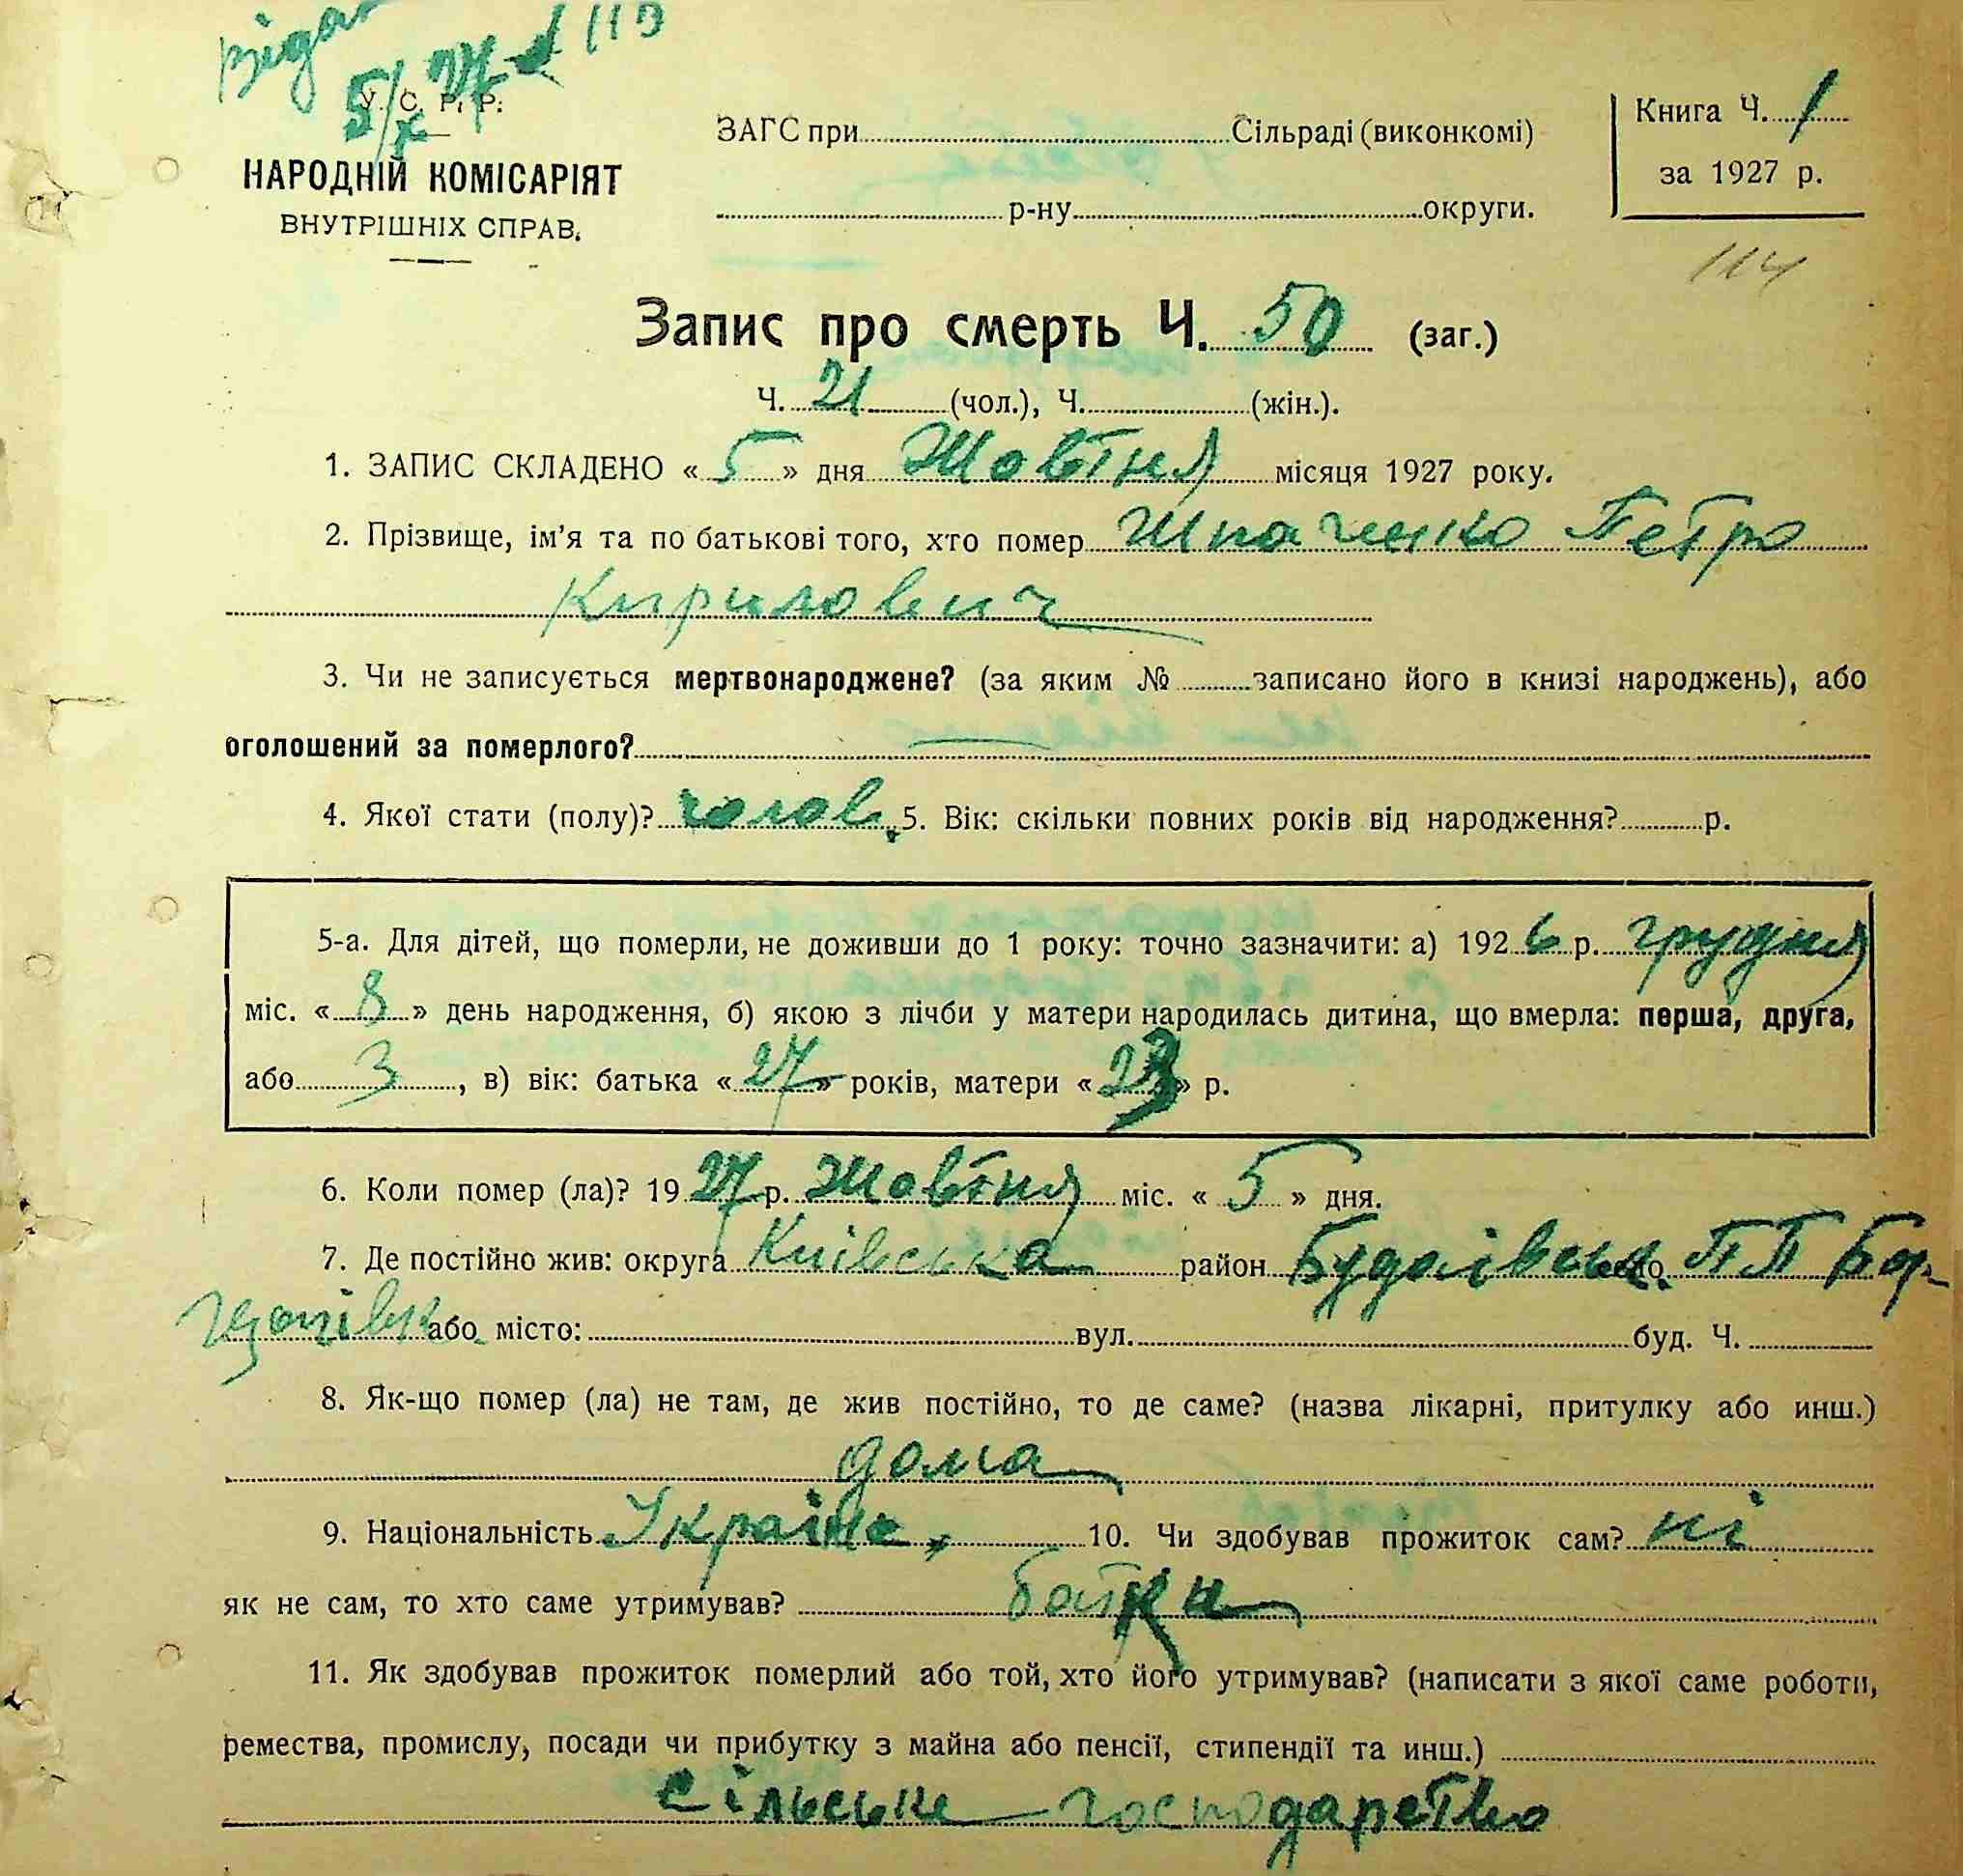 У. С. Р. Р.
НАРОДНІЙ КОМІСАРІЯТ
ВНУТРІШНІХ СПРАВ.
ЗАГС при Сільраді (виконкомі)
р-ну округи.
Книга Ч. 1
за 1927 р.
114
Запис про смерть Ч. 50 (заг.)
Ч. 21 (чол.), Ч. (жін.).
1. ЗАПИС СКЛАДЕНО « 5 » дня Жовтня місяця 1927 року.
2. Прізвище, ім'я та по батькові того, хто помер Шпаченко Петро
Кирилович
3. Чи не записується мертвонароджене? (за яким № записано його в книзі народжень), або
оголошений за померлого? —
4. Якої стати (полу)? чолов. 5. Вік: скільки повних років від народження? р.
5-а. Для дітей, що померли, не доживши до 1 року: точно зазначити: а) 1926 р. грудня
міс. « 8 » день народження, б) якою з лічби у матери народилась дитина, що вмерла: перша, друга,
або 3, в) вік: батька « 27 » років, матери « 23 » р.
6. Коли помер (ла)? 1927 р. Жовтня міс. « 5 » дня.
7. Де постійно жив: округа Київська район Будаївськ. ПП Бор-
щагівк або місто: вул. буд. Ч.
8. Як-що помер (ла) не там, де жив постійно, то де саме? (назва лікарні, притулку або инш.)
дома
9. Національність Україне, 10. Чи здобував прожиток сам? ні
як не сам, то хто саме утримував? батьки
11. Як здобував прожиток померлий або той, хто його утримував? (написати з якої саме роботи,
ремества, промислу, посади чи прибутку з майна або пенсії, стипендії та инш.)
сільське господарство